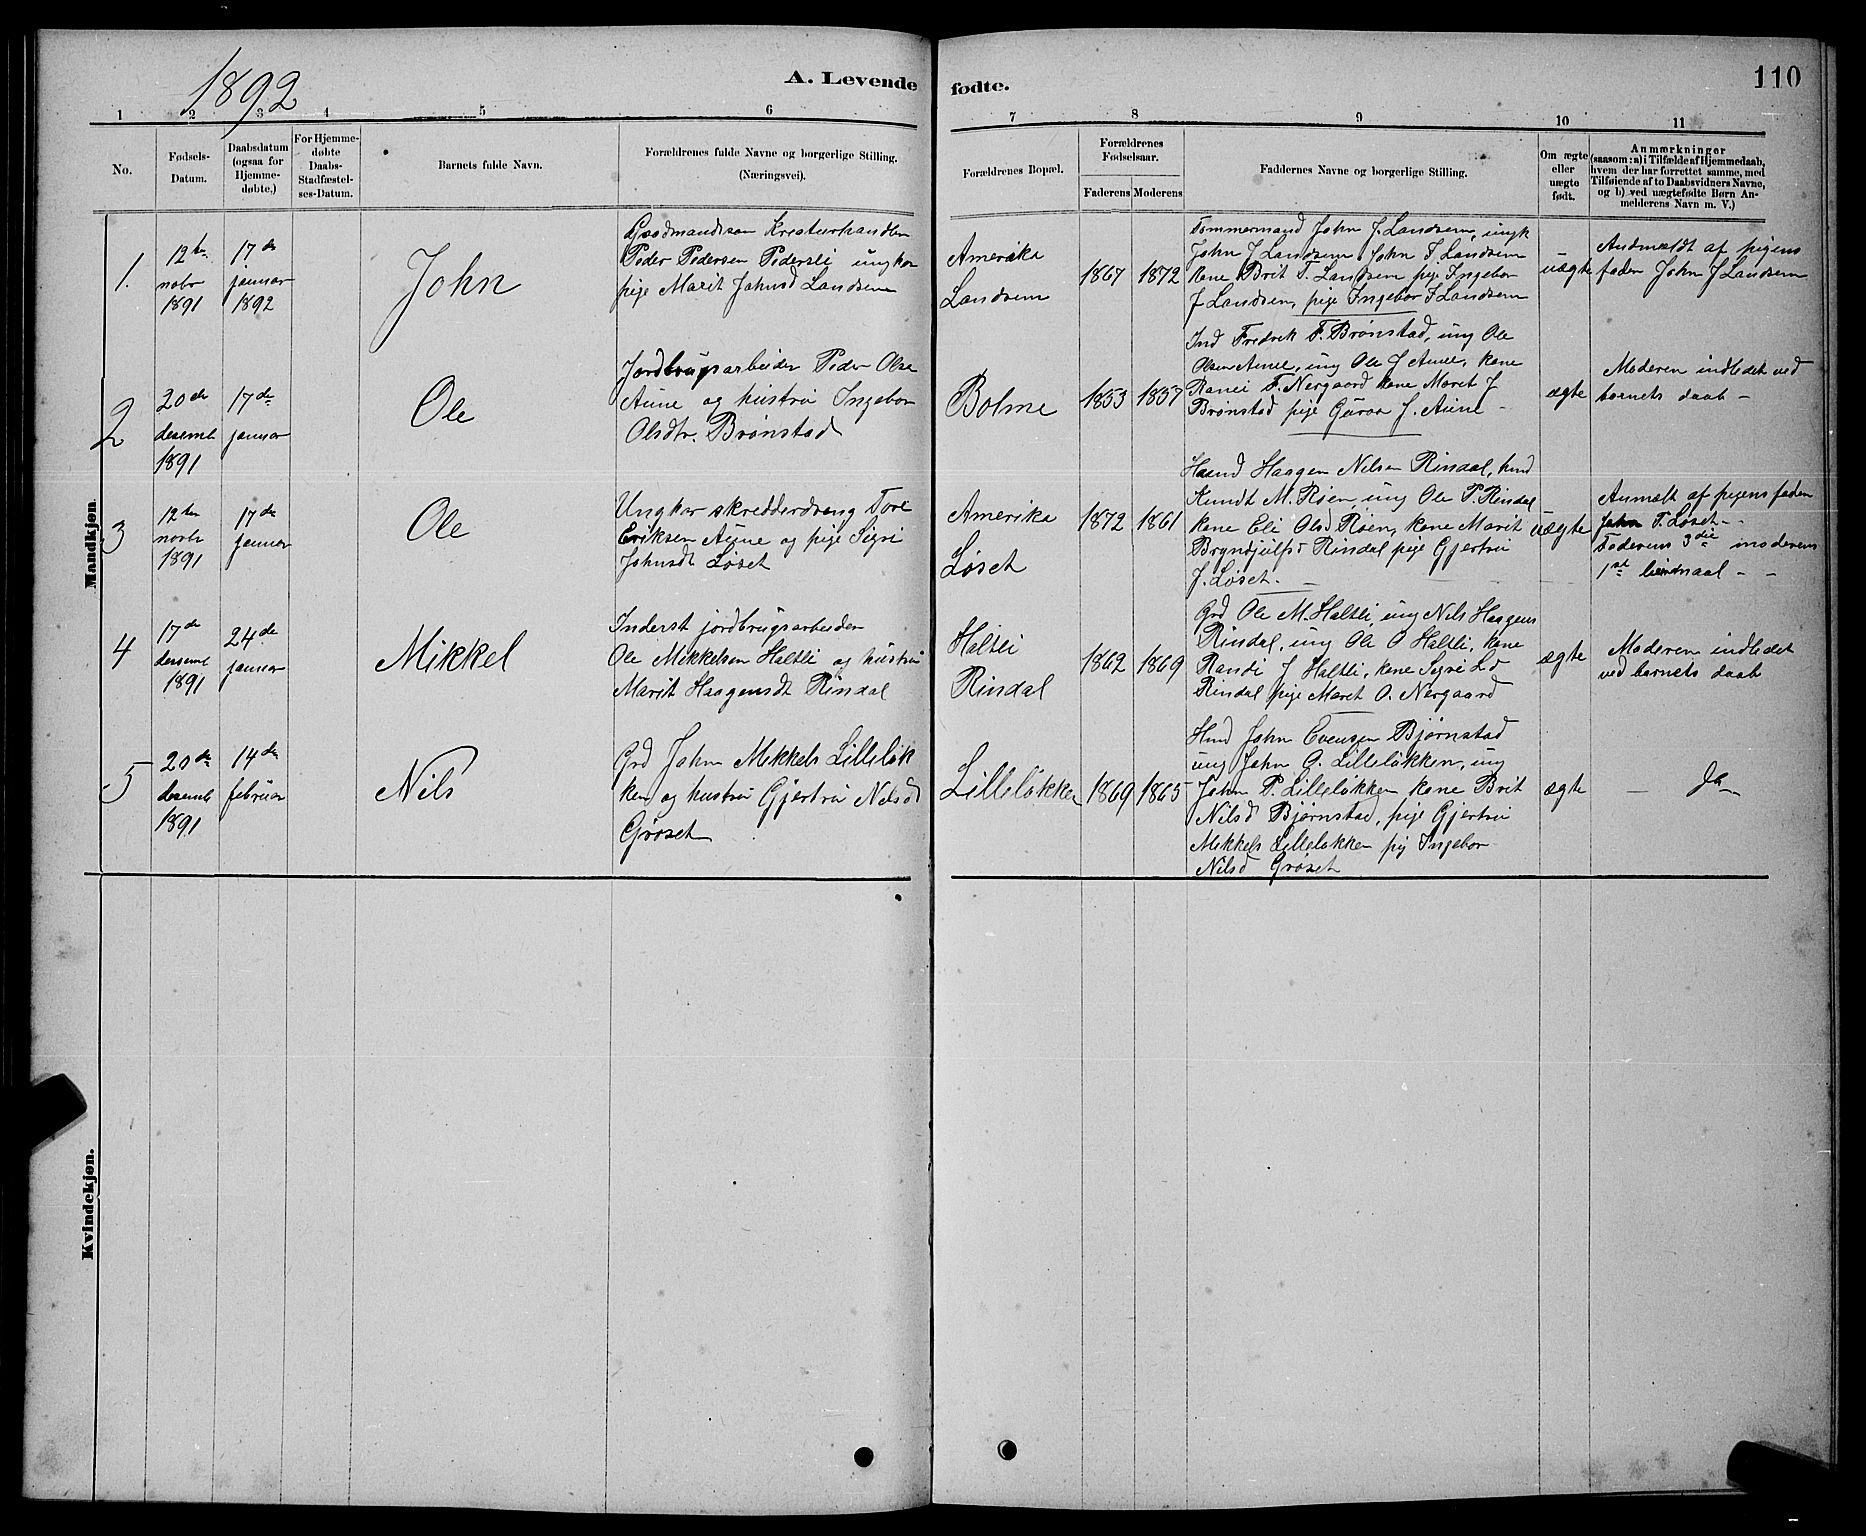 1892
A. Levende fødte.
110
1 2 3 4 5 6 7 8 9 10 11
No.
Fødsels-
Datum.
Daabsdatum
(ogsaa for
Hjemme-
døbte,)
For Hjemme-
døbte
Daabs-
Stadfæstel-
ses-Datum.
Barnets fulde Navn.
Forældrenes fulde Navne og borgerlige Stilling.
(Næringsvei).
Forældrenes Bopæl.
Forældrenes
Fødselsaar.
Faderens Moderens
Faddernes Navne og borgerlige Stilling.
Om ægte
eller
uægte
født.
Anmærkninger
(saasom: a) i Tilfælde af Hjemmedaab,
hvem der har forrettet samme, med
Tilføiende af to Daabsvidners Navne,
og b) ved uægtefødte Børn An-
melderens Navn m. V.)
Mandkjøn
1.
12te
nobr
1891
17de
januar
1892
John
Gaardmandssøn Kreaturhandler
Peder Pedersen Pedersli ungkar
pige Marit Johnsd Landsem
Amerika
Landsem
1867 1872
Tømmermand John J. Landsem, ungk
John J Landsem John T Landsem
kone Brit T. Landsem pige Ingebor
J Landsem, pige Ingebor T Landsem
uægte
Andmældt af pigens
fader John J Landsem
2
20de
desembr
1891
17de
januar
Ole
Jordbrugsarbeider Peder Olse
Aune og hustru Ingebor
Olsdtr. Brønstad
Bolme
1853 1857
Ind Fredrek F. Brønstad, ung Ole
Olsen Aune, ung Ole J Aune, kone
Ranei T. Nergaard kone Maret J
Brønstad pige Guroa J. Aune -
ægte
Moderen indledet ved
barnets daab -
3
12te
novbr
1891
17de
januar
Ole
Ungkar skredderdreng Tore
Eriksen Aune og pige Sigri
Johnsdt Løset
Amerika
Løset
1872 1861
Husmd Haagen Nilsen Rindal, husmd
Knudt M. Røen, ung Ole P. Rindal
kone Eli Olsd Røen, kone Marit
Bryndjulfsd Rindal pige Gjertru
J. Løset -
uægte
Anmælt af pigens fader
John T. Løset - -
Faderens 3die moderens
1st leiermaal - -
4
17de
desembr
1891
24de
januar
Mikkel
Inderst jordbrugsarbeider
Ole Mikkelsen Haltli og hustru
Marit Haagensdt Rindal
Haltli
Rindal
1862 1869
Grd Ole M. Haltli, ung Nils Haagens
Rindal, ung Ole O Haltli, kone
Randi J Haltli, kone Sigri L d
Rindal pige Maret O. Nergaard
ægte
Moderen indledet
ved barnets daab
5
20de
desembr
1891
14de
februar
Nils
Grd John Mikkels Lilleløk
ken og hustru Gjertru Nilsd
Grøset
Lilleløkken
1869 1865
Husmd John Evensen Bjørnstad
ung John O. Lilleløkken, ung
John P. Lilleløkken kone Brit
Nilsd Bjørnstad, pige Gjertru
Mikkels Lilleløkken pig Ingebor
Nilsd Grøset
ægte
-
Kvindekjøn.